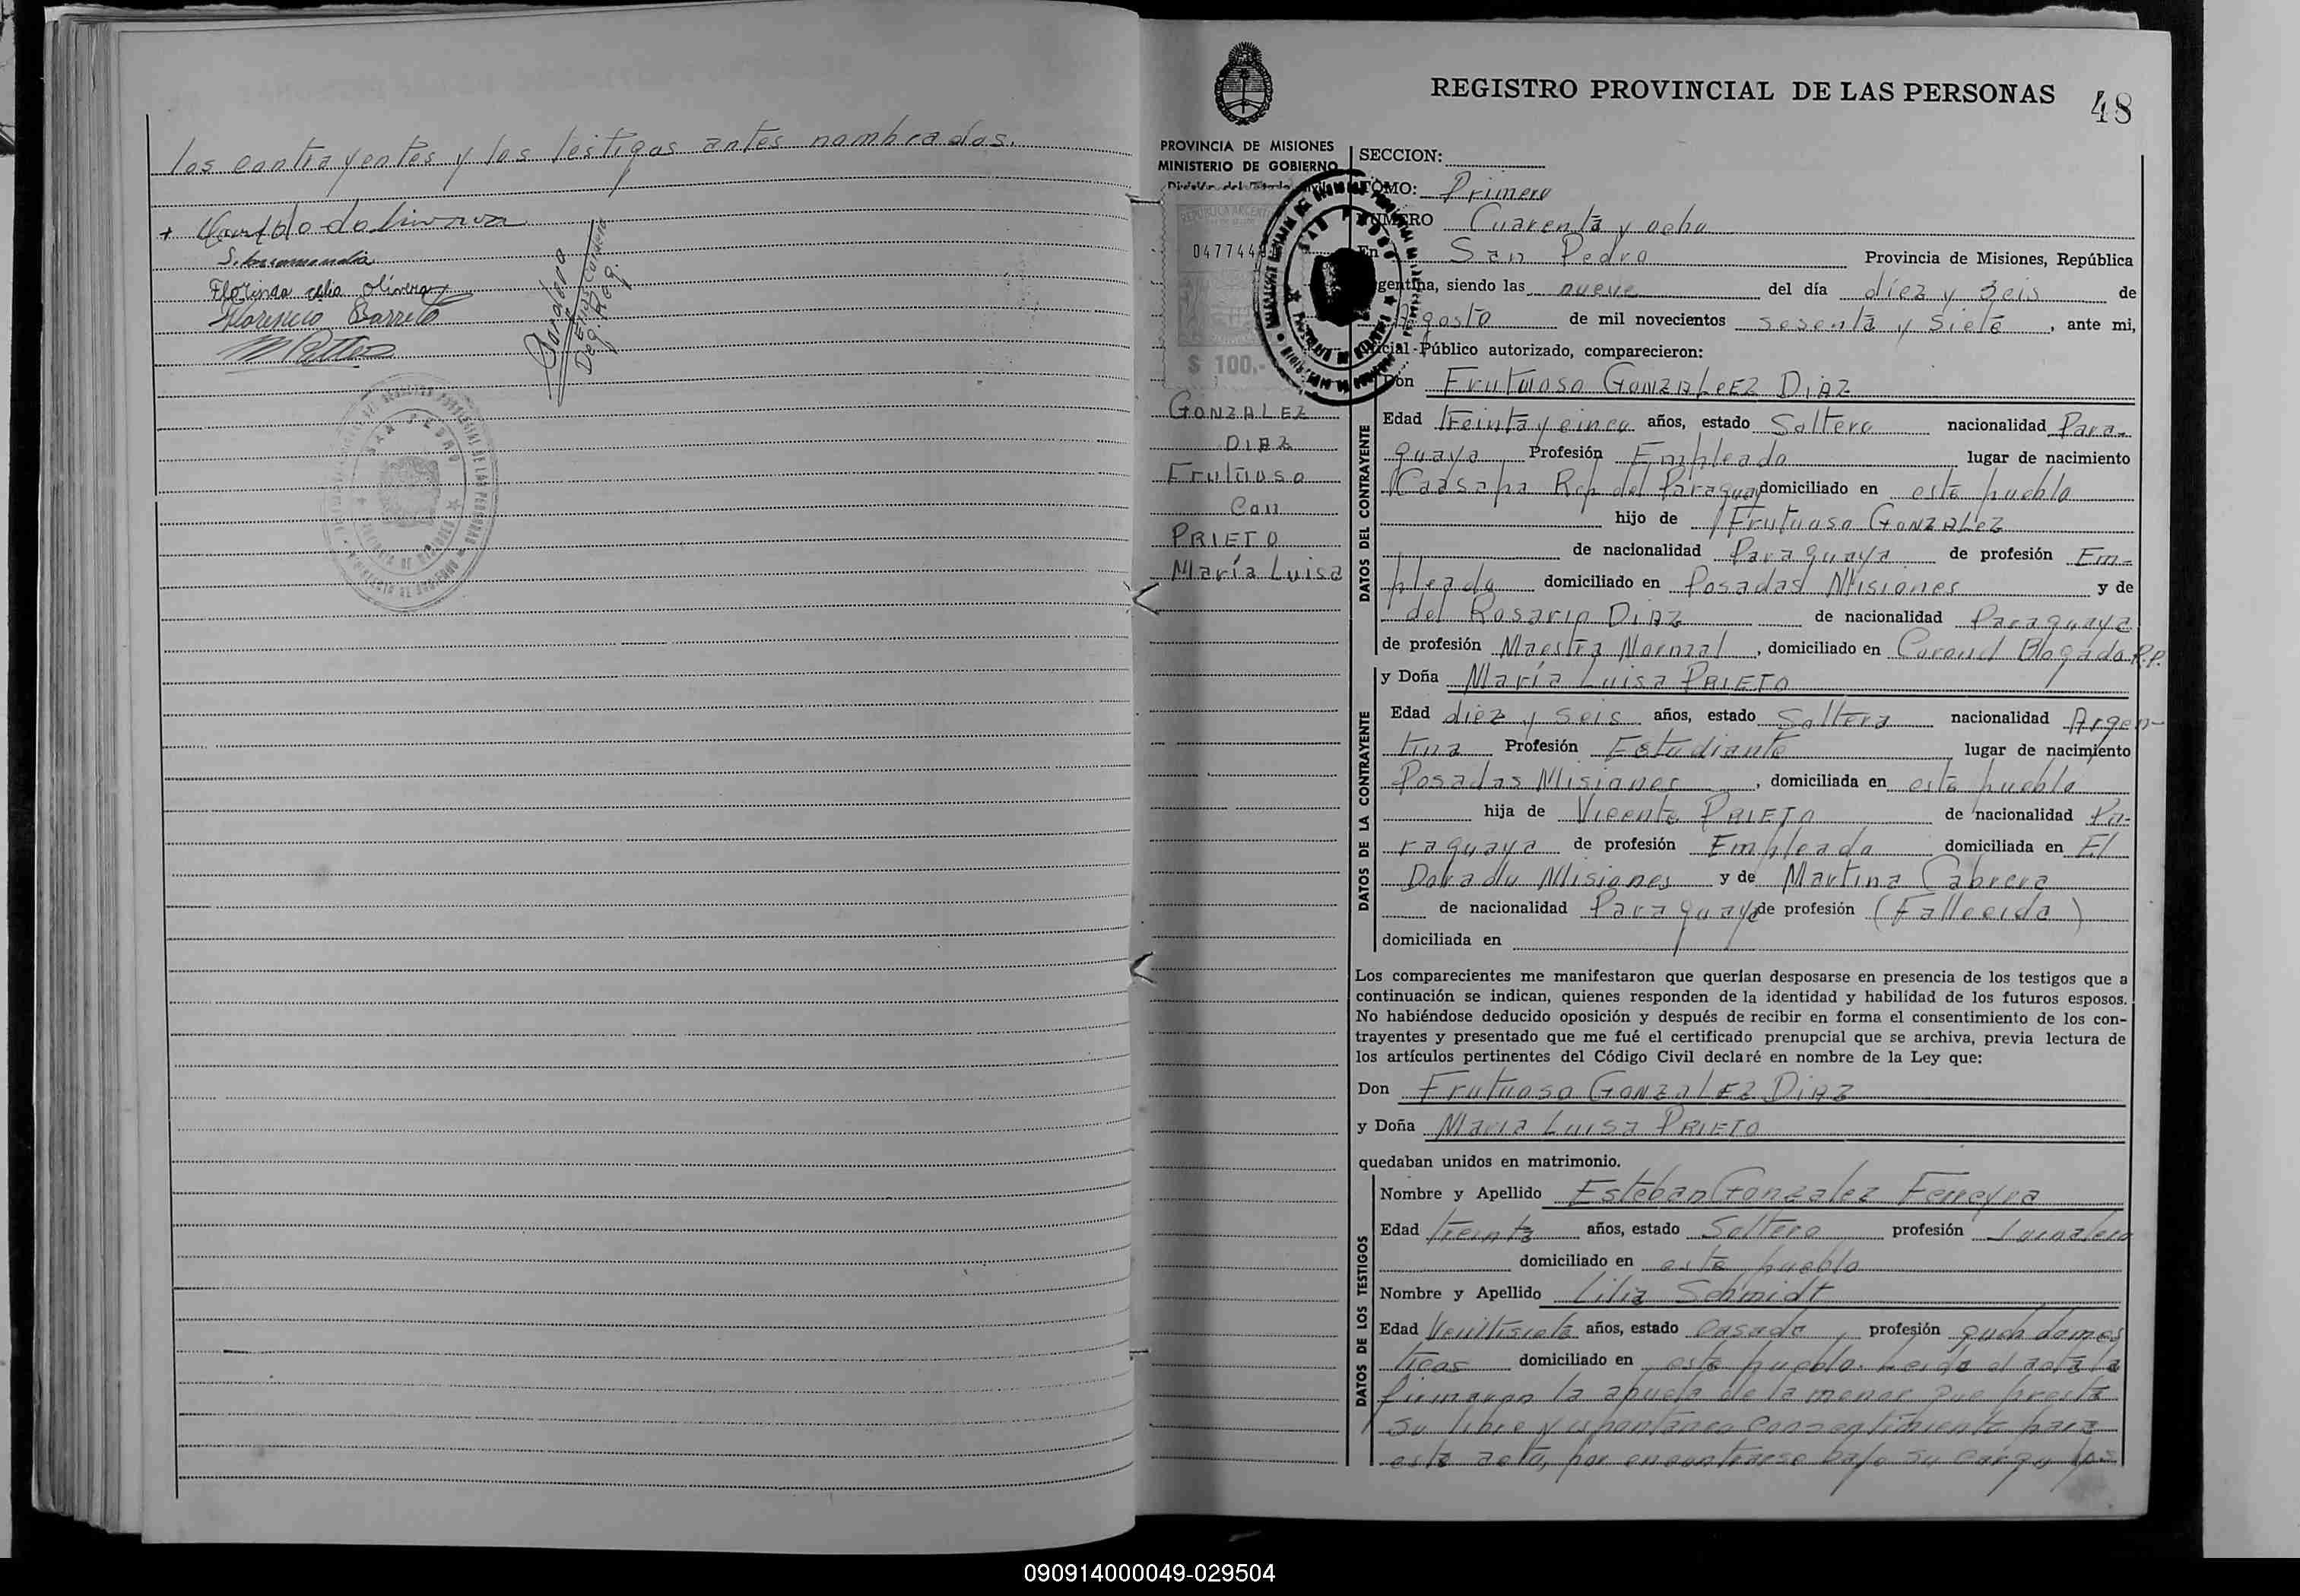 los contrayentes y los testigos antes nombrados.
Florinda Olivera
Florencio Barreto
SAN PEDRO
REGISTRO PROVINCIAL DE LAS PERSONAS
48
PROVINCIA DE MISIONES
MINISTERIO DE GOBIERNO
REPUBLICA ARGENTINA
$ 100.-
GONZALEZ
DIAZ
Frutuoso
Con
PRIETO
María Luisa
SECCION:
TOMO: Primero
NUMERO Cuarenta y ocho
En San Pedro Provincia de Misiones, República
Argentina, siendo las nueve del día diez y seis de
Agosto de mil novecientos sesenta y siete, ante mi,
Oficial-Público autorizado, comparecieron:
DATOS DEL CONTRAYENTE
Don Frutuoso GONZALEZ DIAZ
Edad treinta y cinco años, estado Soltero nacionalidad Para-
guaya Profesión Empleado lugar de nacimiento
Caasapa Rep del Paraguay domiciliado en este pueblo
hijo de Frutuoso GONZALEZ
de nacionalidad Paraguaya de profesión Em-
pleado domiciliado en Posadas Misiones y de
del Rosario DIAZ de nacionalidad Paraguaya
de profesión Maestra Normal, domiciliado en Coronel Bogado R.P.
DATOS DE LA CONTRAYENTE
y Doña María Luisa PRIETO
Edad diez y seis años, estado Soltera nacionalidad Argen-
tina Profesión Estudiante lugar de nacimiento
Posadas Misiones, domiciliada en este pueblo
hija de Vicente PRIETO de nacionalidad Pa-
raguaya de profesión Empleado domiciliada en El
Dorado Misiones y de Martina Cabrera
de nacionalidad Paraguaya de profesión (Fallecida)
domiciliada en
Los comparecientes me manifestaron que querían desposarse en presencia de los testigos que a
continuación se indican, quienes responden de la identidad y habilidad de los futuros esposos.
No habiéndose deducido oposición y después de recibir en forma el consentimiento de los con-
trayentes y presentado que me fué el certificado prenupcial que se archiva, previa lectura de
los artículos pertinentes del Código Civil declaré en nombre de la Ley que:
Don Frutuoso GONZALEZ DIAZ
y Doña María Luisa PRIETO
quedaban unidos en matrimonio.
DATOS DE LOS TESTIGOS
Nombre y Apellido Esteban Gonzalez Ferreyra
Edad treinta años, estado Soltero profesión Jornalero
domiciliado en este pueblo
Nombre y Apellido Lilia Schmidt
Edad Veintisiete años, estado casada profesión queh domes
ticos domiciliado en este pueblo. Leida el acta la
firmaron la abuela de la menor que presta
su libre y espontaneo consentimiento para
este acto, por encontrarse bajo su cargo, los
090914000049-029504